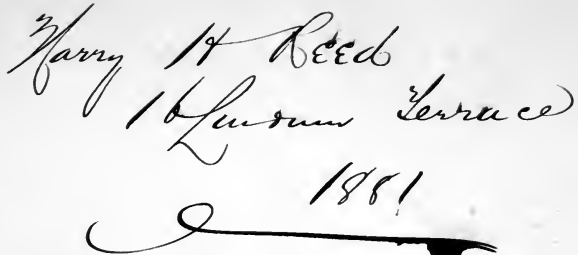 Harry H Reed
16 Lindum Terrace
1881